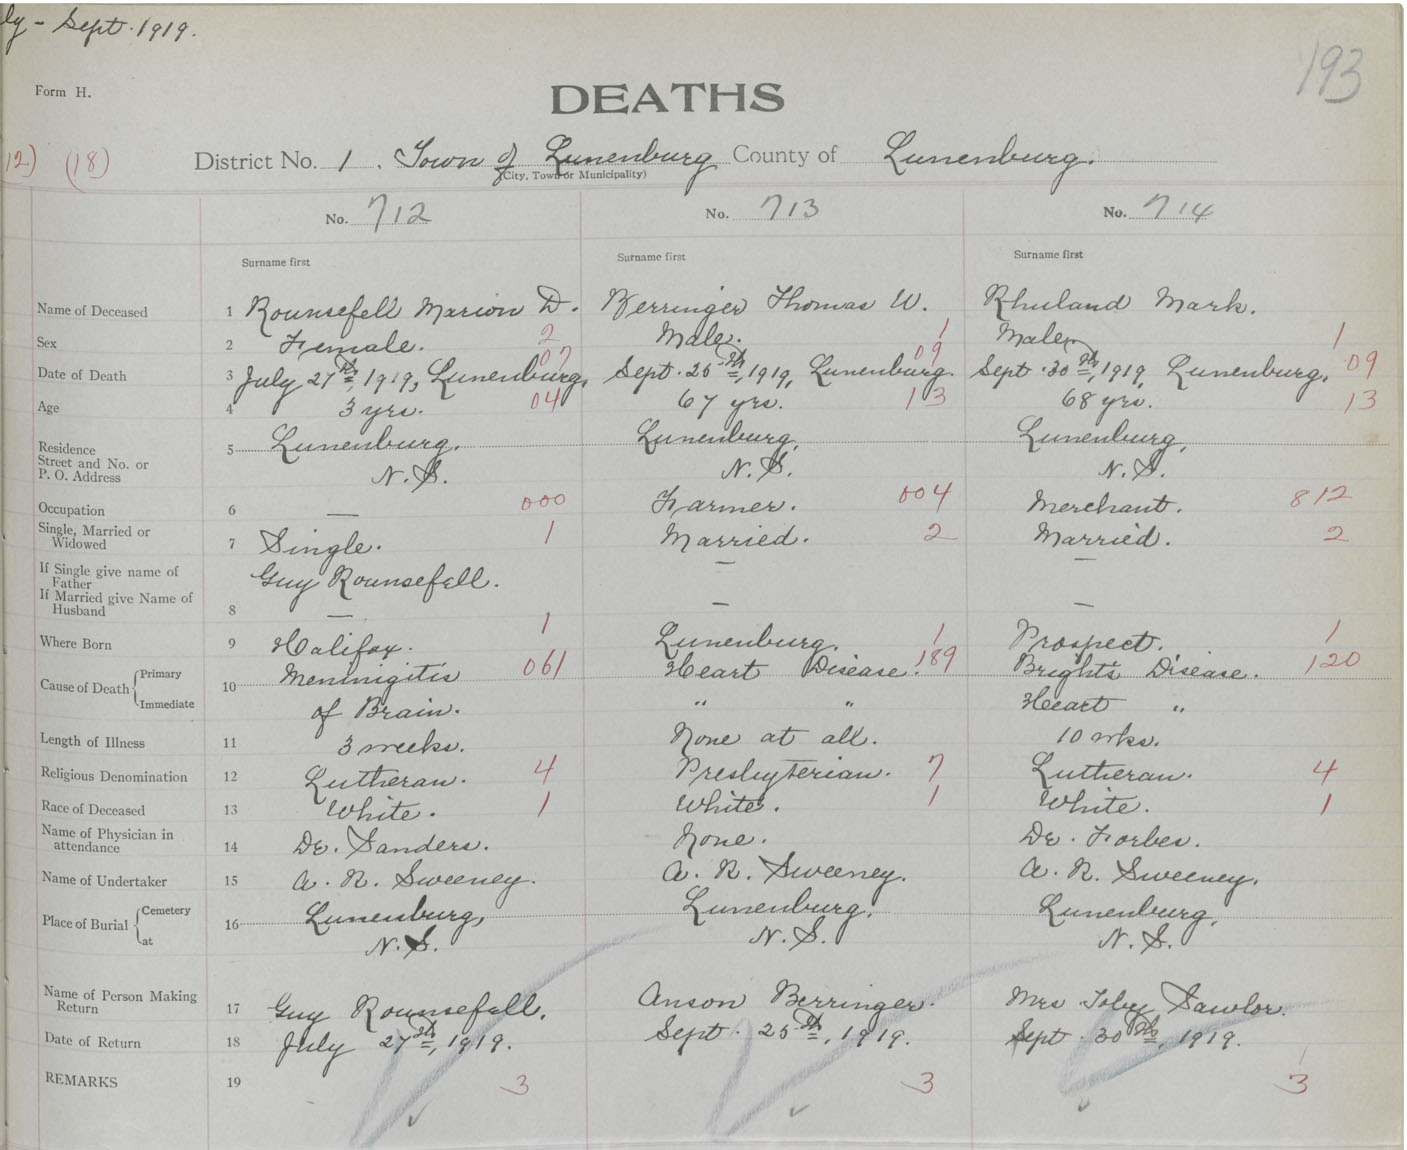 ly - Sept. 1919.
193
Form H.
DEATHS
12) (18)
District No. 1. Town of Lunenburg County of Lunenburg.
(City, Town or Municipality)
No. 712 No. 713 No. 714
Surname first Surname first Surname first
Name of Deceased 1 Rounsefell Marion D. Berringer Thomas W. Rhuland Mark.
Sex 2 Female. 2 Male. 1 Male. 1
07 09 09
Date of Death 3 July 27th, 1919, Lunenburg, Sept. 25th, 1919, Lunenburg. Sept. 30th, 1919, Lunenburg,
Age 4 3 yrs. 04 67 yrs. 13 68 yrs. 13
Residence 5 Lunenburg, Lunenburg, Lunenburg,
Street and No. or
P. O. Address N.S. N.S. N.S.
Occupation 6 — 000 Farmer. 004 Merchant. 812
Single, Married or
Widowed 7 Single. 1 Married. 2 Married. 2
If Single give name of
Father Guy Rounsefell. — —
If Married give Name of
Husband 8 — — —
Where Born 9 Halifax. 1 Lunenburg. 1 Prospect. 1
Cause of Death Primary 10 Meninigitis 061 Heart Disease. 189 Bright's Disease. 120
Immediate of Brain. " " Heart "
Length of Illness 11 3 weeks. None at all. 10 wks.
Religious Denomination 12 Lutheran. 4 Presbyterian. 7 Lutheran. 4
Race of Deceased 13 White. 1 White. 1 White. 1
Name of Physician in
attendance 14 Dr. Sanders. None. Dr. Forbes.
Name of Undertaker 15 A. R. Sweeney. A. R. Sweeney. A. R. Sweeney.
Place of Burial Cemetery 16 Lunenburg, Lunenburg, Lunenburg,
at N.S. N.S. N.S.
Name of Person Making
Return 17 Guy Rounsefell. Anson Berringer. Mrs Toby Sawlor.
Date of Return 18 July 27th, 1919. Sept. 25th, 1919. Sept. 30th, 1919.
REMARKS 19 3 3 3